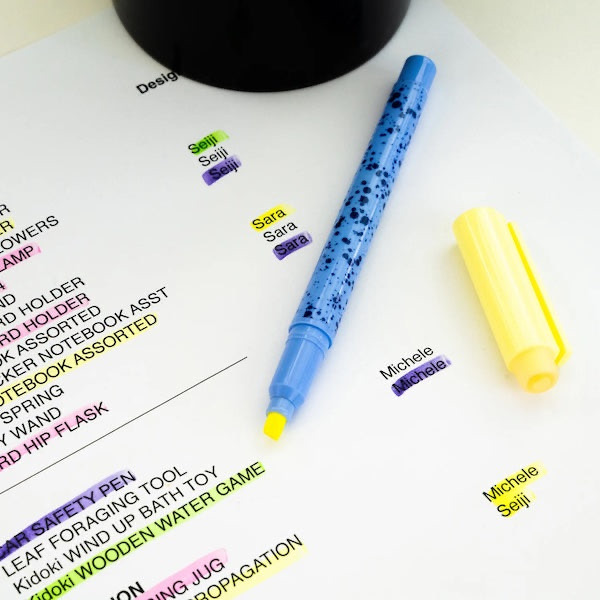 Desig
Seiji
Seiji
Seiji
Sara
Sara
Sara
R
ER
LOWERS
AMP
4
ND
RD HOLDER
RD HOLDER
OK ASSORTED
CKER NOTEBOOK ASST
OTEBOOK ASSORTED
SPRING
Y WAND
RD HIP FLASK
Michele
Michele
CAR SAFETY PEN
LEAF FORAGING TOOL
Kidoki WIND UP BATH TOY
Kidoki WOODEN WATER GAME
Michele
Seiji
ION
ING JUG
PROPAGATION